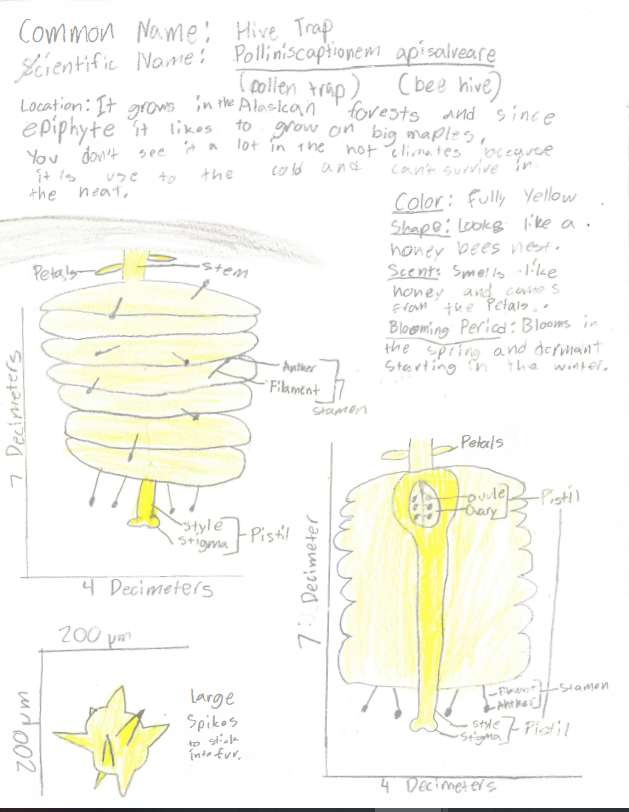 Common Name: Hive Trap
Scientific Name: Polliniscaptionem apisalveare
(pollen trap) (bee hive)
Location: It grows in the Alaskan forests and since
epiphyte it likes to grow on big maples,
You don't see it a lot in the hot climates because
it is use to the cold and can't survive in
the heat.
Color: Fully Yellow
Shape: Looks like a
honey bees nest.
Scent: Smells like
honey and comes
from the Petals.
Blooming Period: Blooms in
the spring and dormant
starting in the winter.
Petals
stem
Anther
Filament
stamen
style
stigma
Pistil
7 Decimeters
4 Decimeters
Petals
ovule
Ovary
Pistil
Filament
Anther
stamen
style
stigma
Pistil
7 Decimeter
4 Decimeters
200 µm
200 µm
Large
Spikes
to stick
into fur.